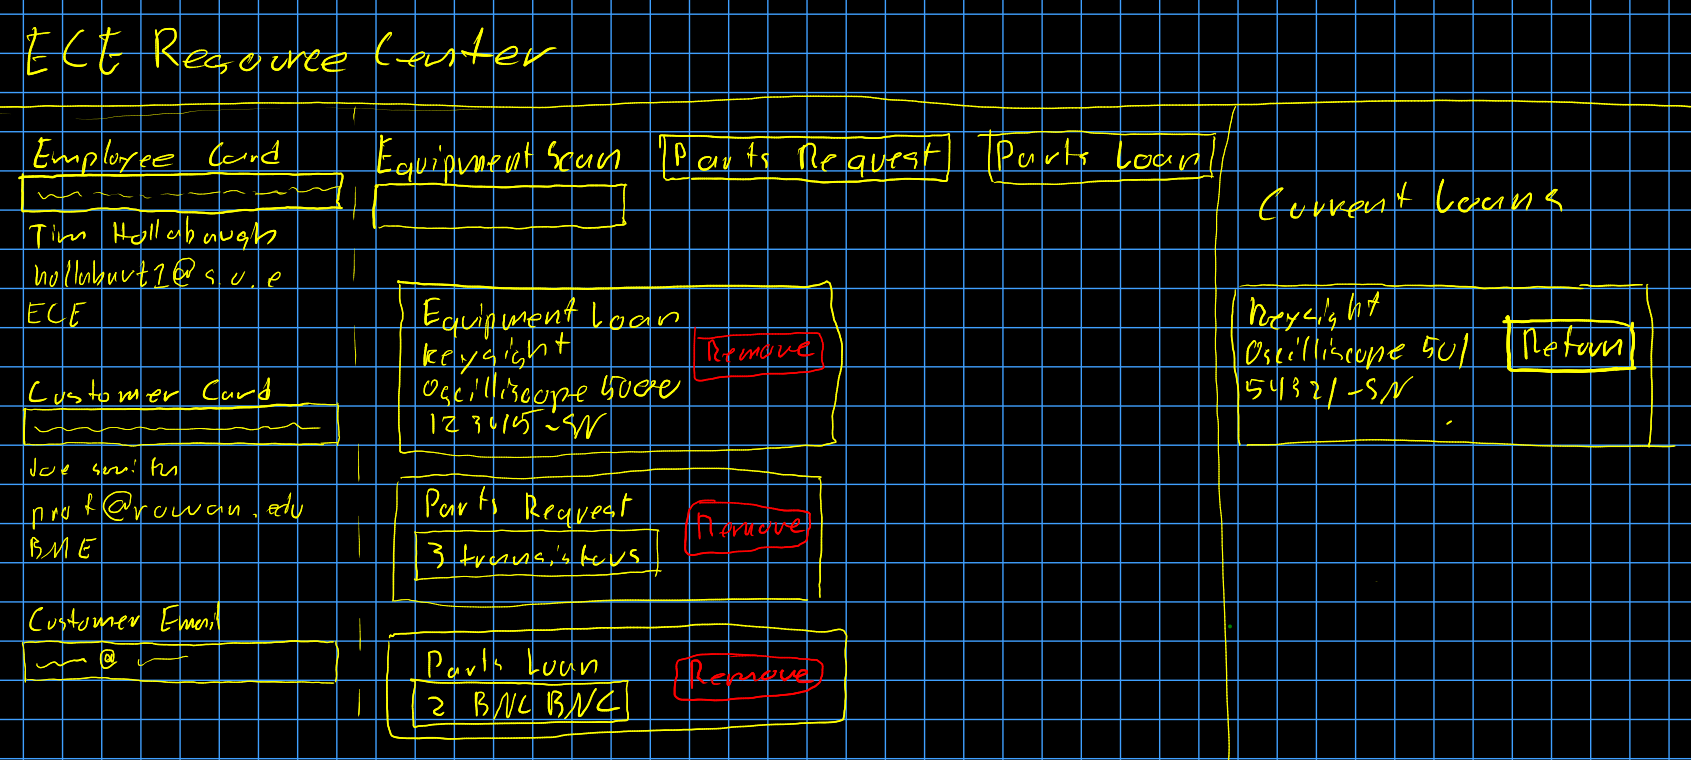 ECE Resource Center
Employee Card
Tim Hollabaugh
ECE
Customer Card
Joe smith
prof@rowan.edu
BME
Customer Email
@
Equipment Scan
Parts Request
Parts Loan
Equipment Loan
Keysight
Oscilliscope 5000
12345-SN
Remove
Parts Request
3 transistors
Remove
Parts Loan
2 BNC BNC
Remove
Current Loans
Keysight
Oscilliscope 501
54321-SN
Return